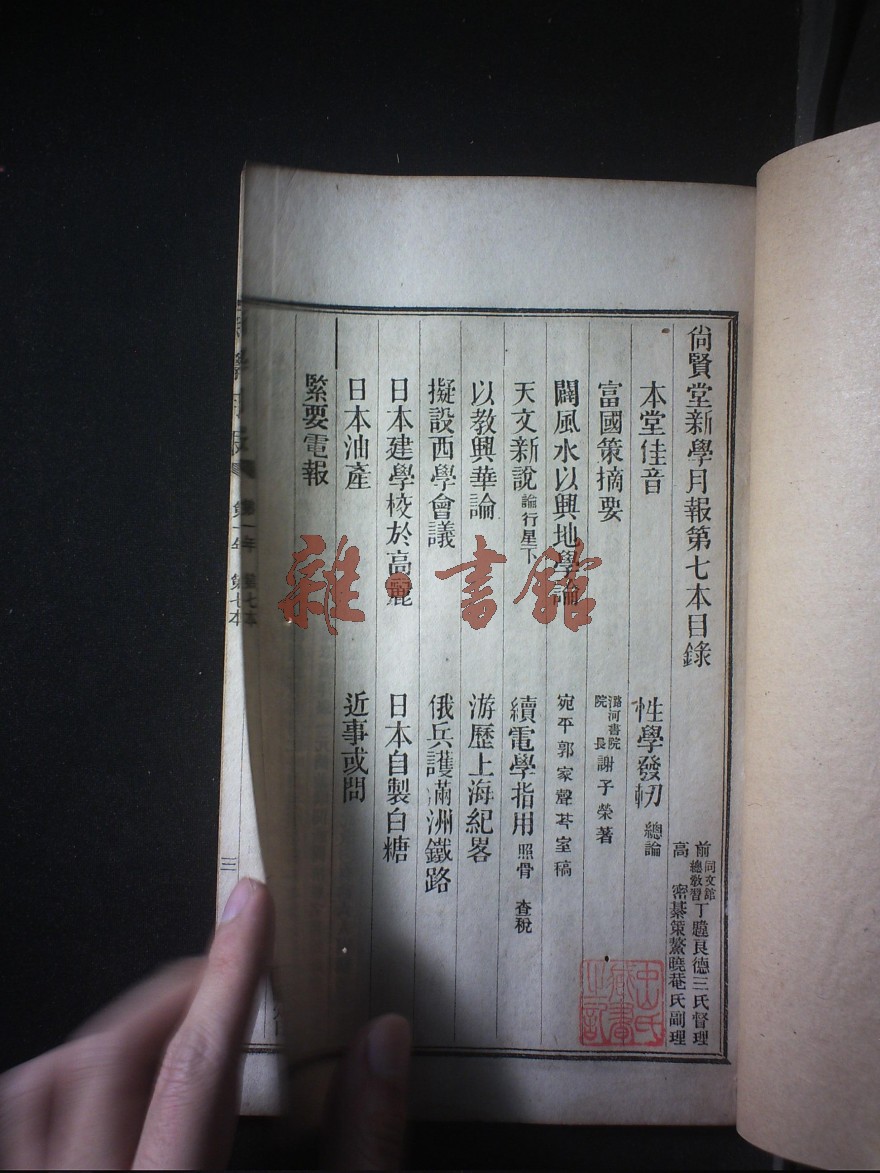 尙賢堂新學月報第七本目錄
前同文館總敎習丁韙良德三氏督理
高密綦策鰲曉菴氏副理
本堂佳音
性學發軔 總論
富國策摘要
潞河書院院長謝子榮著
闢風水以興地學論
宛平郭家聲芩室稿
天文新說 論行星下
續電學指用 照骨 查稅
以教興華論
游歷上海紀畧
擬設西學會議
俄兵護滿洲鐵路
日本建學校於高麗
日本自製白糖
日本油產
近事或問
緊要電報
第一年 第七本
三
雜·書館